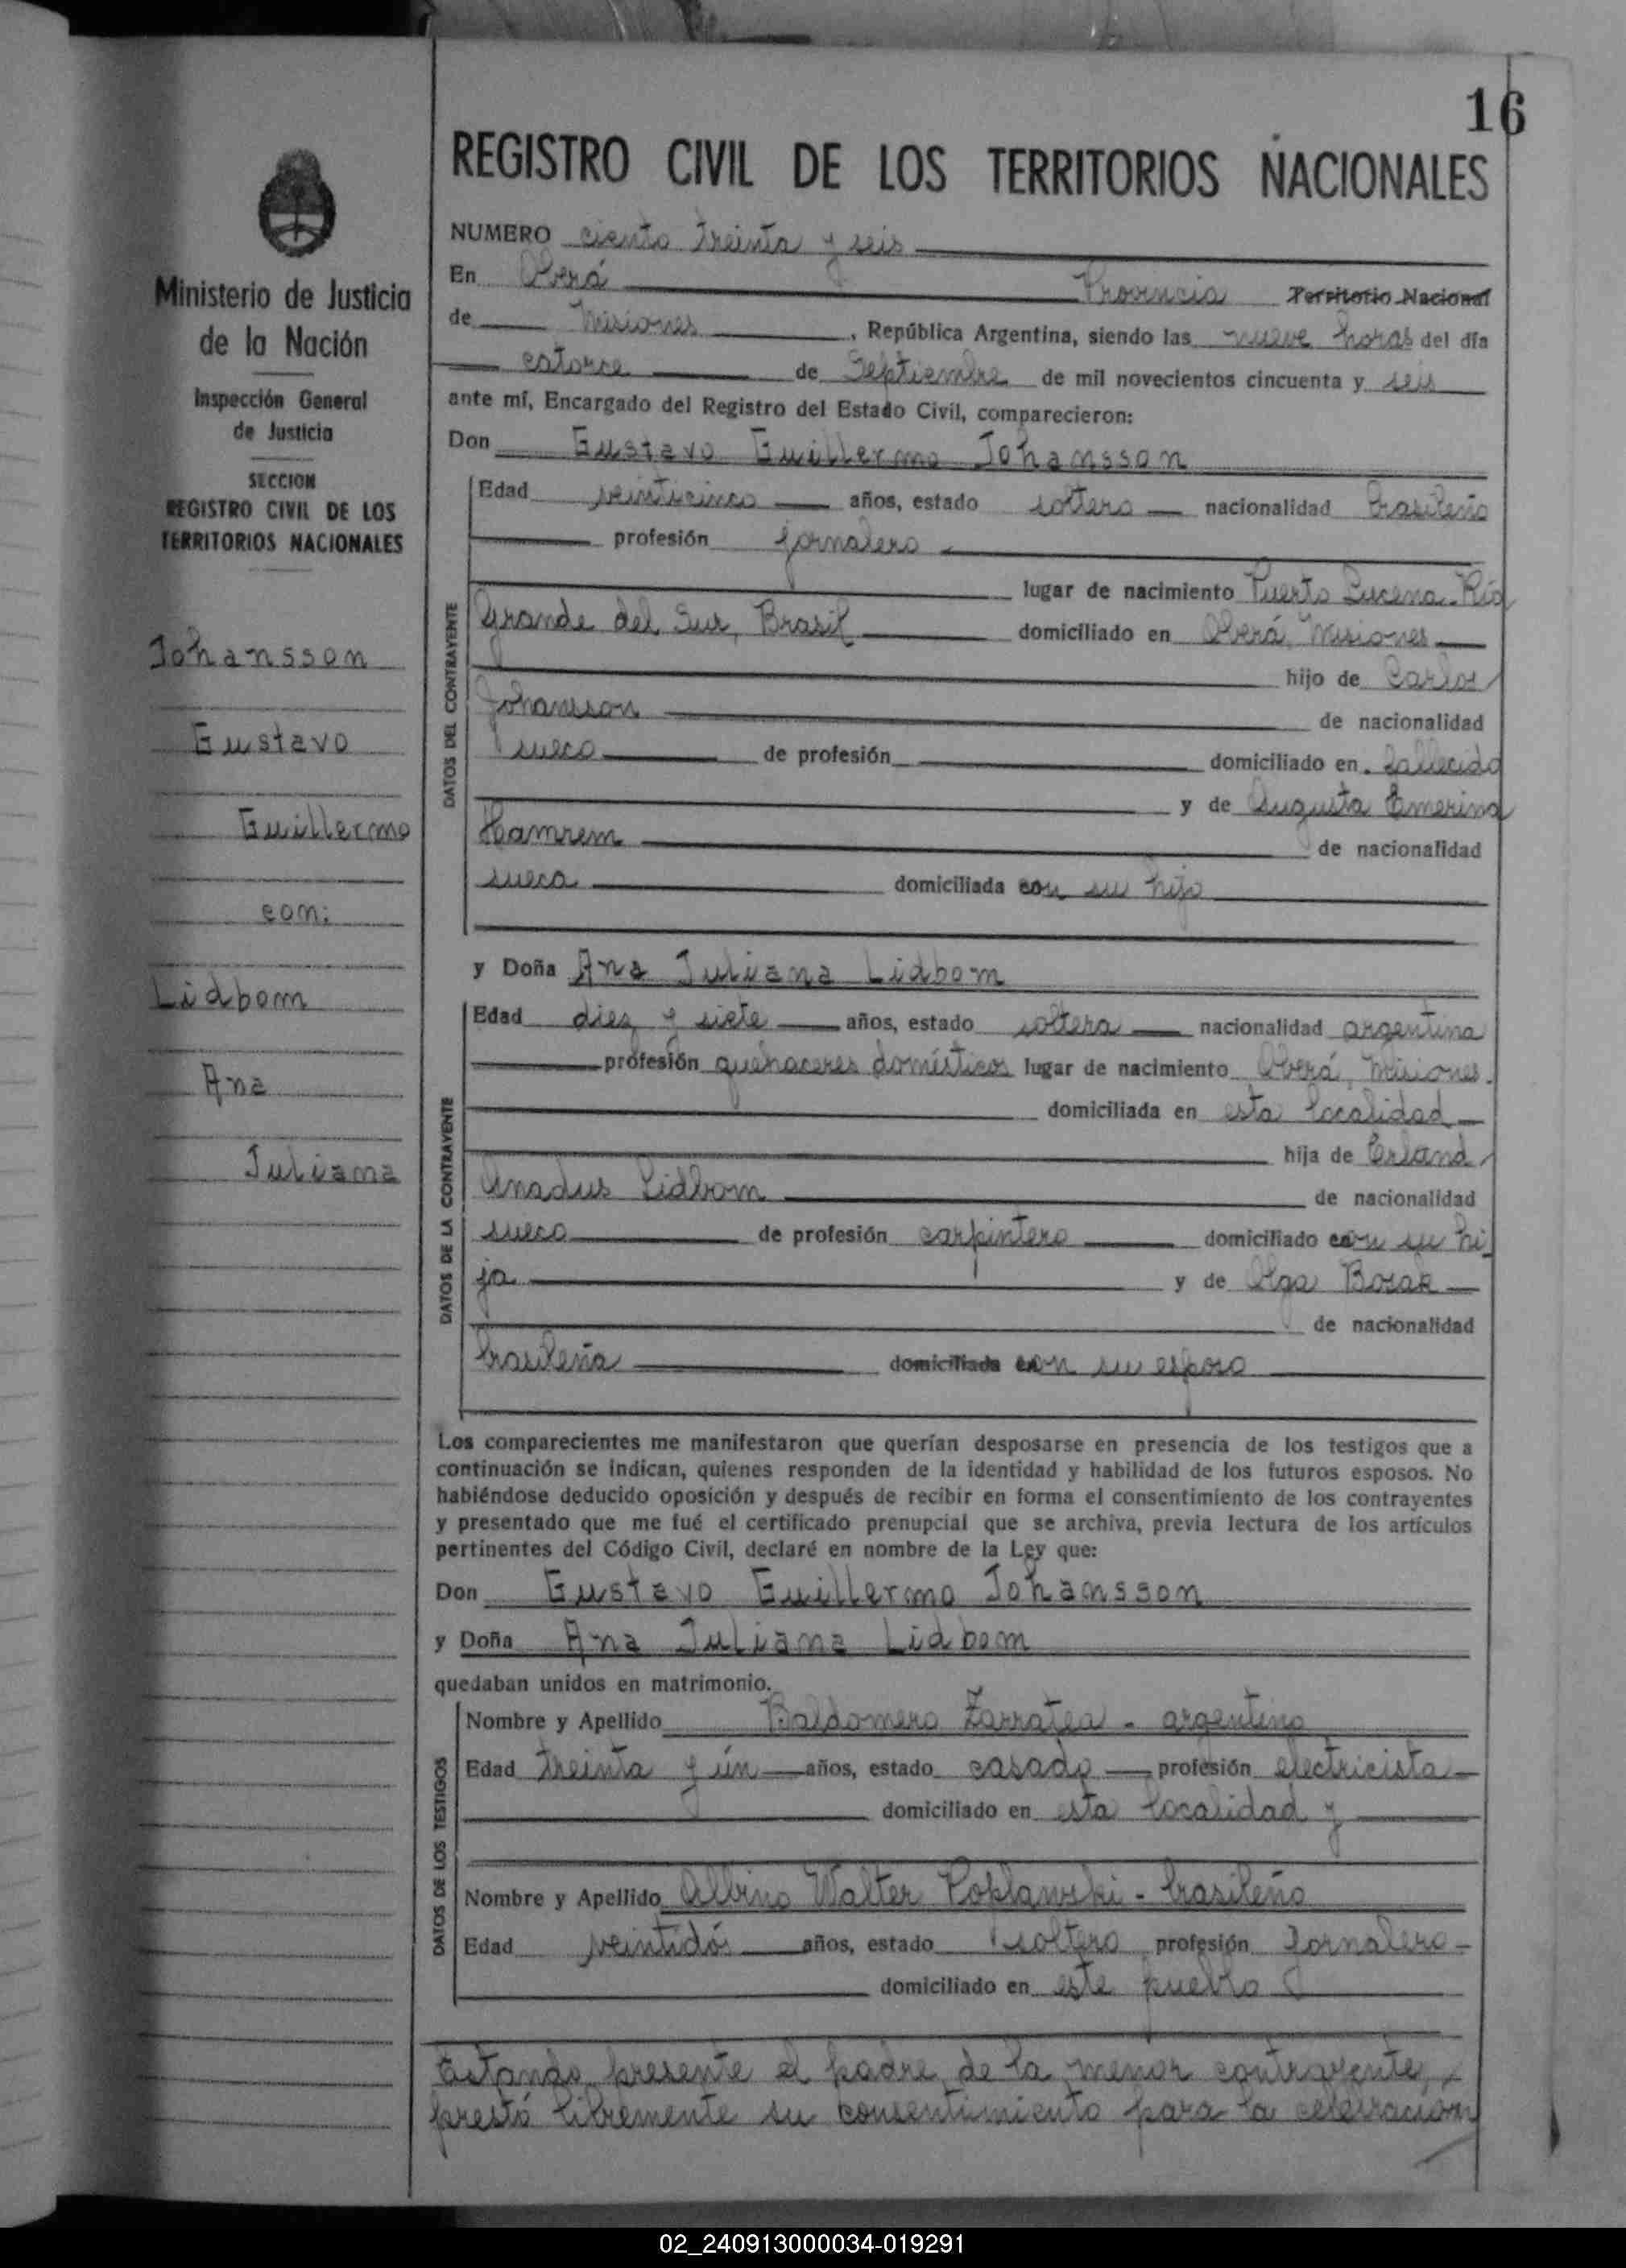 16
REGISTRO CIVIL DE LOS TERRITORIOS NACIONALES
Ministerio de Justicia
de la Nación
Inspección General
de Justicia
SECCION
REGISTRO CIVIL DE LOS
TERRITORIOS NACIONALES
Johansson
Gustavo
Guillermo
con:
Lidbom
Ana
Juliana
NUMERO ciento treinta y seis
En Oberá Provincia Territorio Nacional
de Misiones, República Argentina, siendo las nueve horas del día
catorce de Septiembre de mil novecientos cincuenta y seis
ante mí, Encargado del Registro del Estado Civil, comparecieron:
Don Gustavo Guillermo Johansson
DATOS DEL CONTRAYENTE
Edad veinticinco años, estado soltero nacionalidad brasileño
profesión jornalero
lugar de nacimiento Puerto Lucena-Río
Grande del Sur, Brasil domiciliado en Oberá, Misiones
hijo de Carlos
Johansson de nacionalidad
sueco de profesión domiciliado en fallecido
y de Augusta Emerina
Hamrem de nacionalidad
sueca domiciliada con su hijo
y Doña Ana Juliana Lidbom
DATOS DE LA CONTRAYENTE
Edad diez y siete años, estado soltera nacionalidad argentina
profesión quehaceres domésticos lugar de nacimiento Oberá, Misiones.
domiciliada en esta localidad
hija de Erland
Anadus Lidbom de nacionalidad
sueco de profesión carpintero domiciliado con su hi
ja y de Olga Bosak
de nacionalidad
brasileña domiciliada con su esposo
Los comparecientes me manifestaron que querían desposarse en presencia de los testigos que a
continuación se indican, quienes responden de la identidad y habilidad de los futuros esposos. No
habiéndose deducido oposición y después de recibir en forma el consentimiento de los contrayentes
y presentado que me fué el certificado prenupcial que se archiva, previa lectura de los artículos
pertinentes del Código Civil, declaré en nombre de la Ley que:
Don Gustavo Guillermo Johansson
y Doña Ana Juliana Lidbom
quedaban unidos en matrimonio.
DATOS DE LOS TESTIGOS
Nombre y Apellido Baldomero Zarratea - argentino
Edad treinta y ún años, estado casado profesión electricista
domiciliado en esta localidad y
Nombre y Apellido Albino Walter Poklawski - brasileño
Edad veintidós años, estado soltero profesión Jornalero
domiciliado en este pueblo
Estando presente el padre de la menor contrayente,
prestó libremente su consentimiento para la celebración
02_240913000034-019291